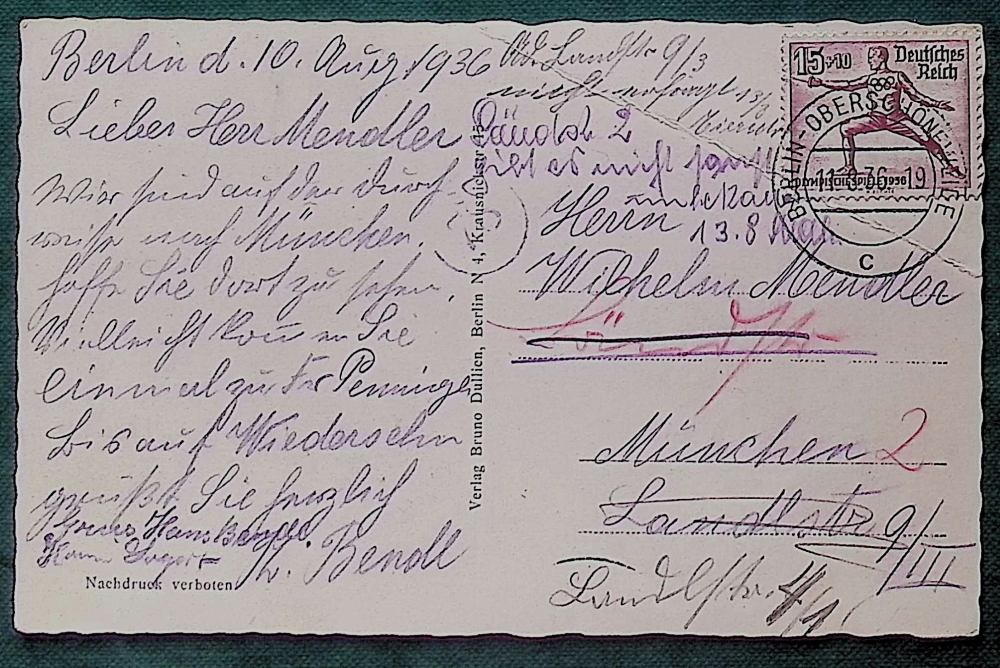 Berlin d. 10. Aug 1936
Lieber Herr Mendler
Wir sind auf der Durch
reise nach München.
hoffe Sie dort zu sehen.
Vielleicht kom̄en Sie
einmal zur Fr Penninger
bis auf Wiedersehn
grüßt Sie herzlich
Hans Bendl.
Bendl
Nachdruck verboten
Verlag Bruno Dullien, Berlin N 4, Krausnickstr
Landstr 9/3
nicht
2
gibt es nicht
13.8
15+10
Deutsches
Reich
OLYMPISCHE SPIELE 1936
BERLIN-OBERSCHÖNEWEIDE
36.-19
c
Herrn
Wilhelm Mendler
München 2
Landstr 9/III
Landlstr. 4/1